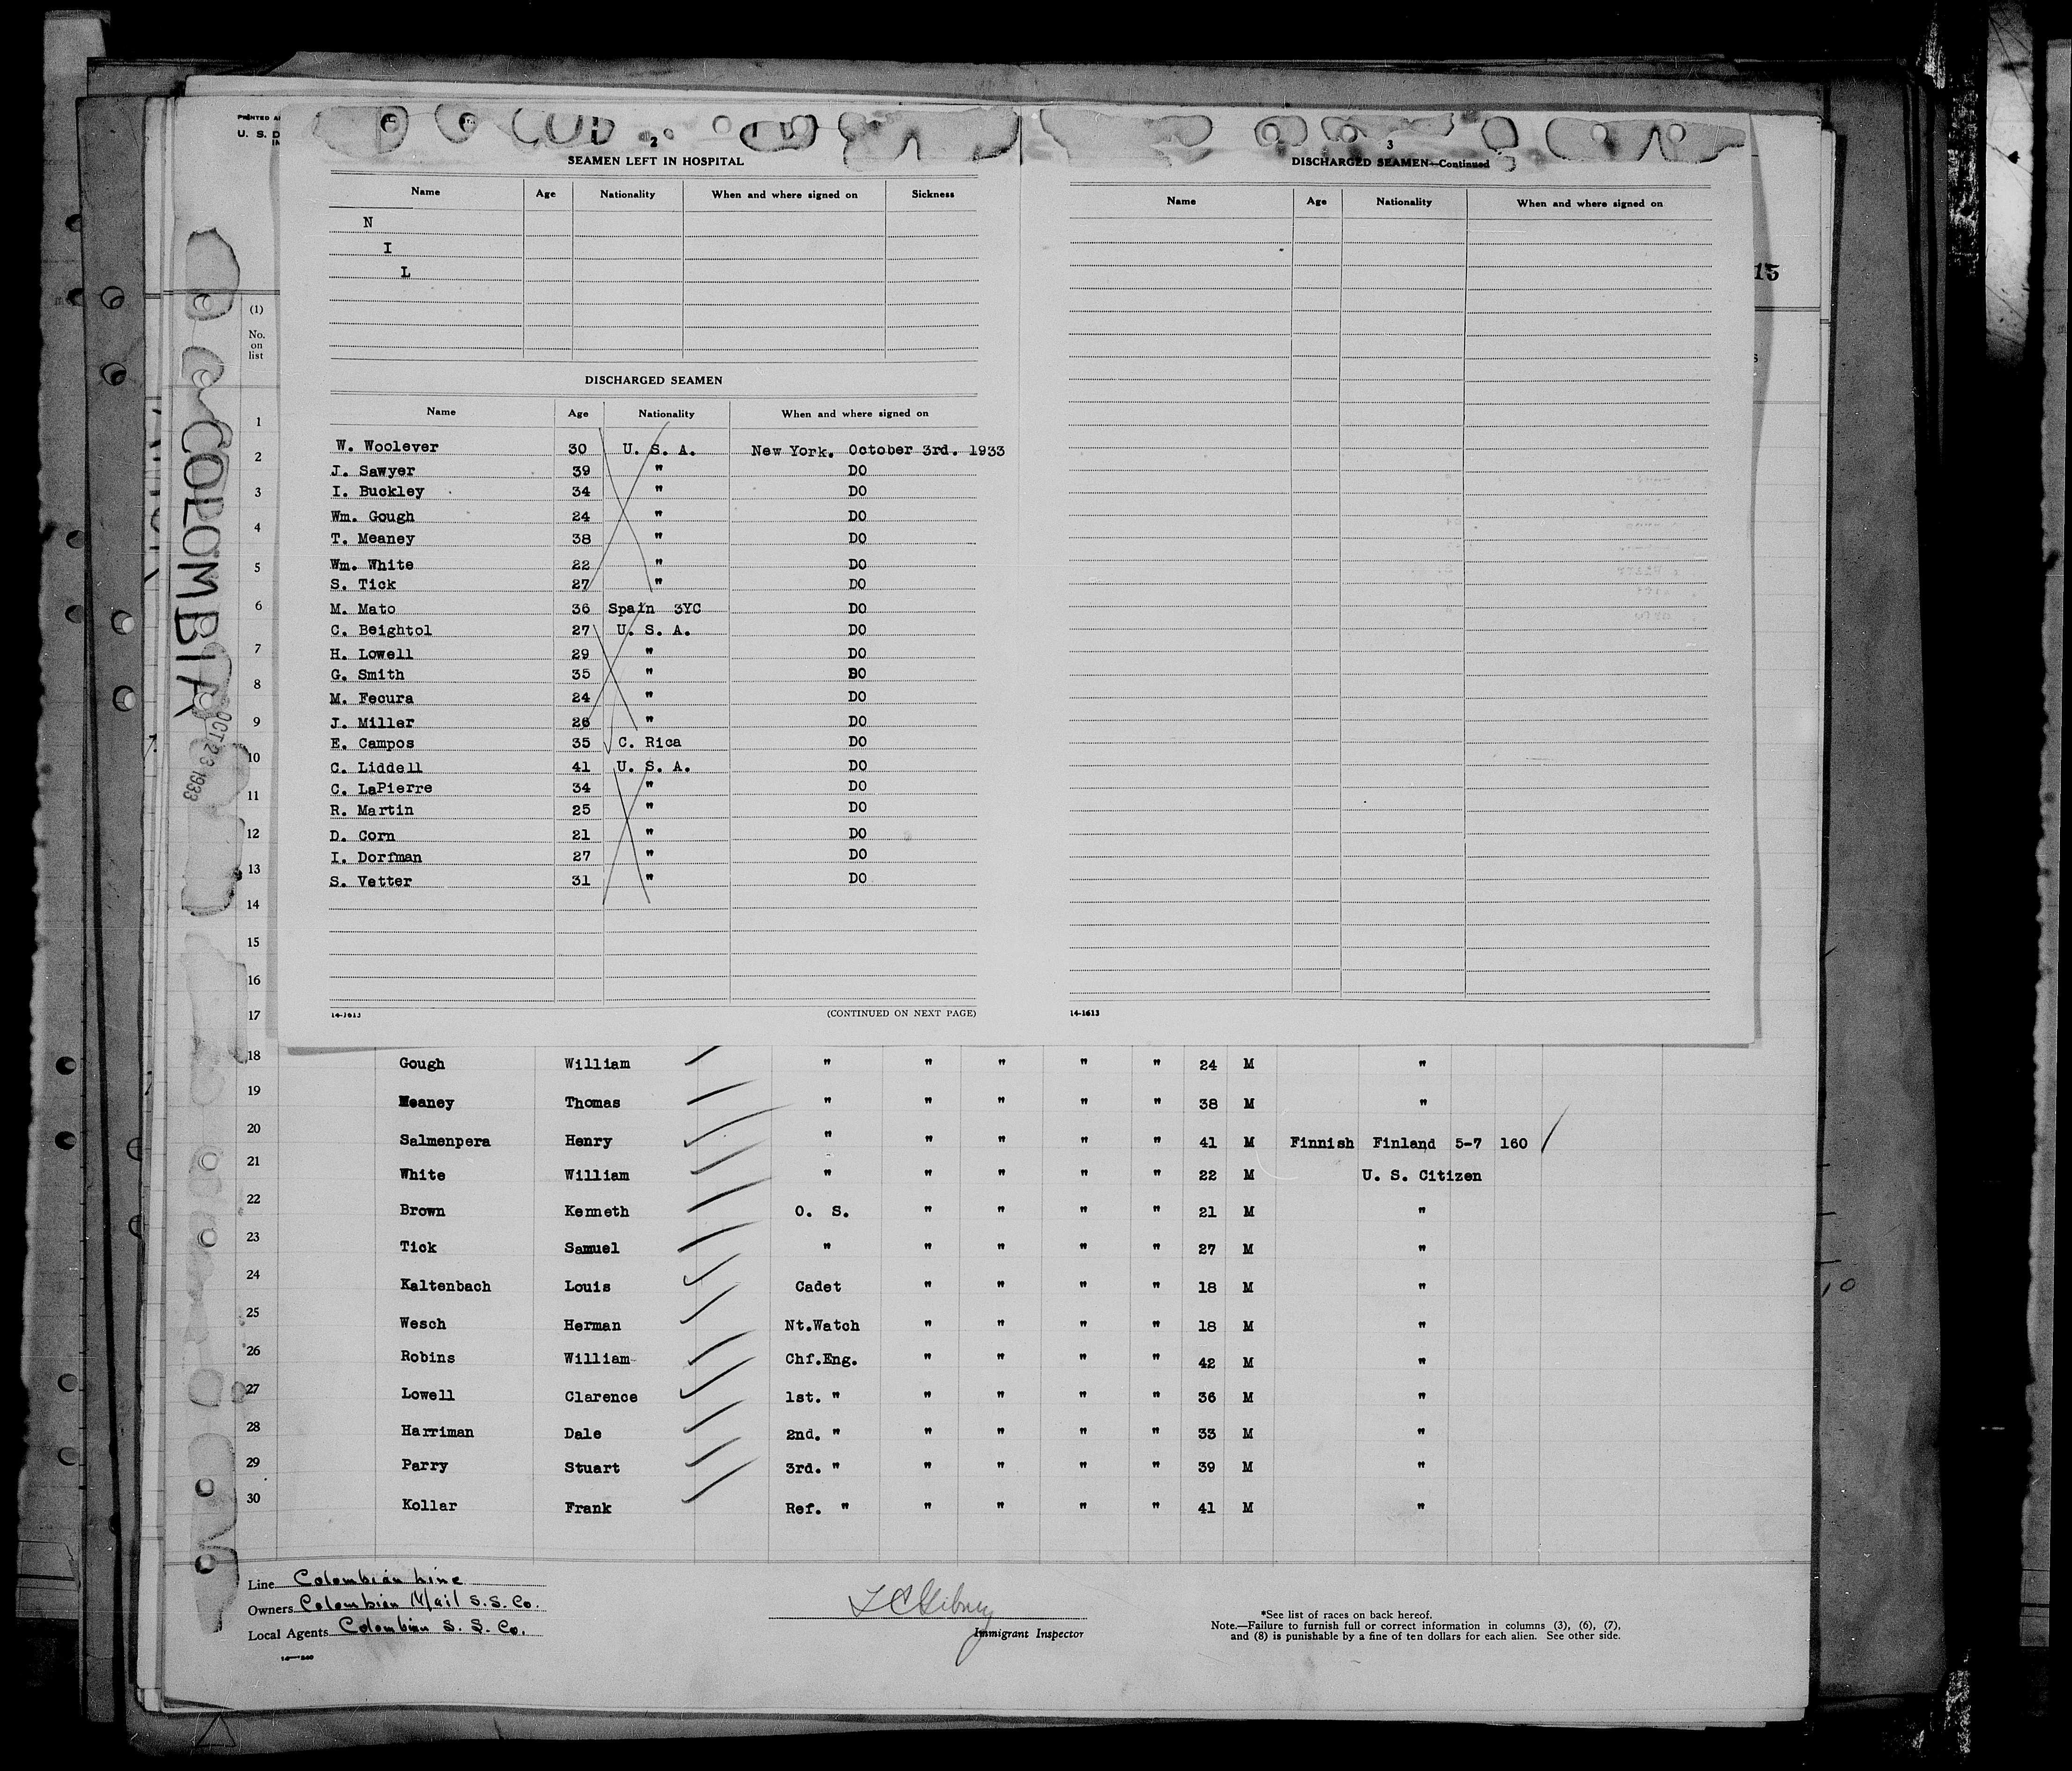 PRINTED
U. S. D
COLOMBIA
OCT 23 1933
2
SEAMEN LEFT IN HOSPITAL
Name Age Nationality When and where signed on Sickness
N
I
L
DISCHARGED SEAMEN
Name Age Nationality When and where signed on
W. Woolever 30 U. S. A. New York. October 3rd. 1933
J. Sawyer 39 " DO
I. Buckley 34 " DO
Wm. Gough 24 " DO
T. Meaney 38 " DO
Wm. White 22 " DO
S. Tick 27 " DO
M. Mato 36 Spain 3YC DO
C. Beightol 27 U. S. A. DO
H. Lowell 29 " DO
G. Smith 35 " DO
M. Fecura 24 " DO
J. Miller 26 " DO
E. Campos 35 C. Rica DO
C. Liddell 41 U. S. A. DO
C. LaPierre 34 " DO
R. Martin 25 " DO
D. Corn 21 " DO
I. Dorfman 27 " DO
S. Vetter 31 " DO
14-1613 (CONTINUED ON NEXT PAGE)
3
DISCHARGED SEAMEN—Continued
Name Age Nationality When and where signed on
14-1613
15
(1)
No.
on
list
1
2
3
4
5
6
7
8
9
10
11
12
13
14
15
16
17
18 Gough William " " " " " 24 M "
19 Meaney Thomas " " " " " 38 M "
20 Salmenpera Henry " " " " " 41 M Finnish Finland 5-7 160
21 White William " " " " " 22 M U. S. Citizen
22 Brown Kenneth O. S. " " " " 21 M "
23 Tick Samuel " " " " " 27 M "
24 Kaltenbach Louis Cadet " " " " 18 M "
25 Wesch Herman Nt.Watch " " " " 18 M "
26 Robins William Chf.Eng. " " " " 42 M "
27 Lowell Clarence 1st. " " " " " 36 M "
28 Harriman Dale 2nd. " " " " " 33 M "
29 Parry Stuart 3rd. " " " " " 39 M "
30 Kollar Frank Ref. " " " " " 41 M "
10
Line Colombian Line
Owners Colombian Mail S.S. Co.
Local Agents Colombian S. S. Co.
Immigrant Inspector
*See list of races on back hereof.
Note.—Failure to furnish full or correct information in columns (3), (6), (7),
and (8) is punishable by a fine of ten dollars for each alien. See other side.